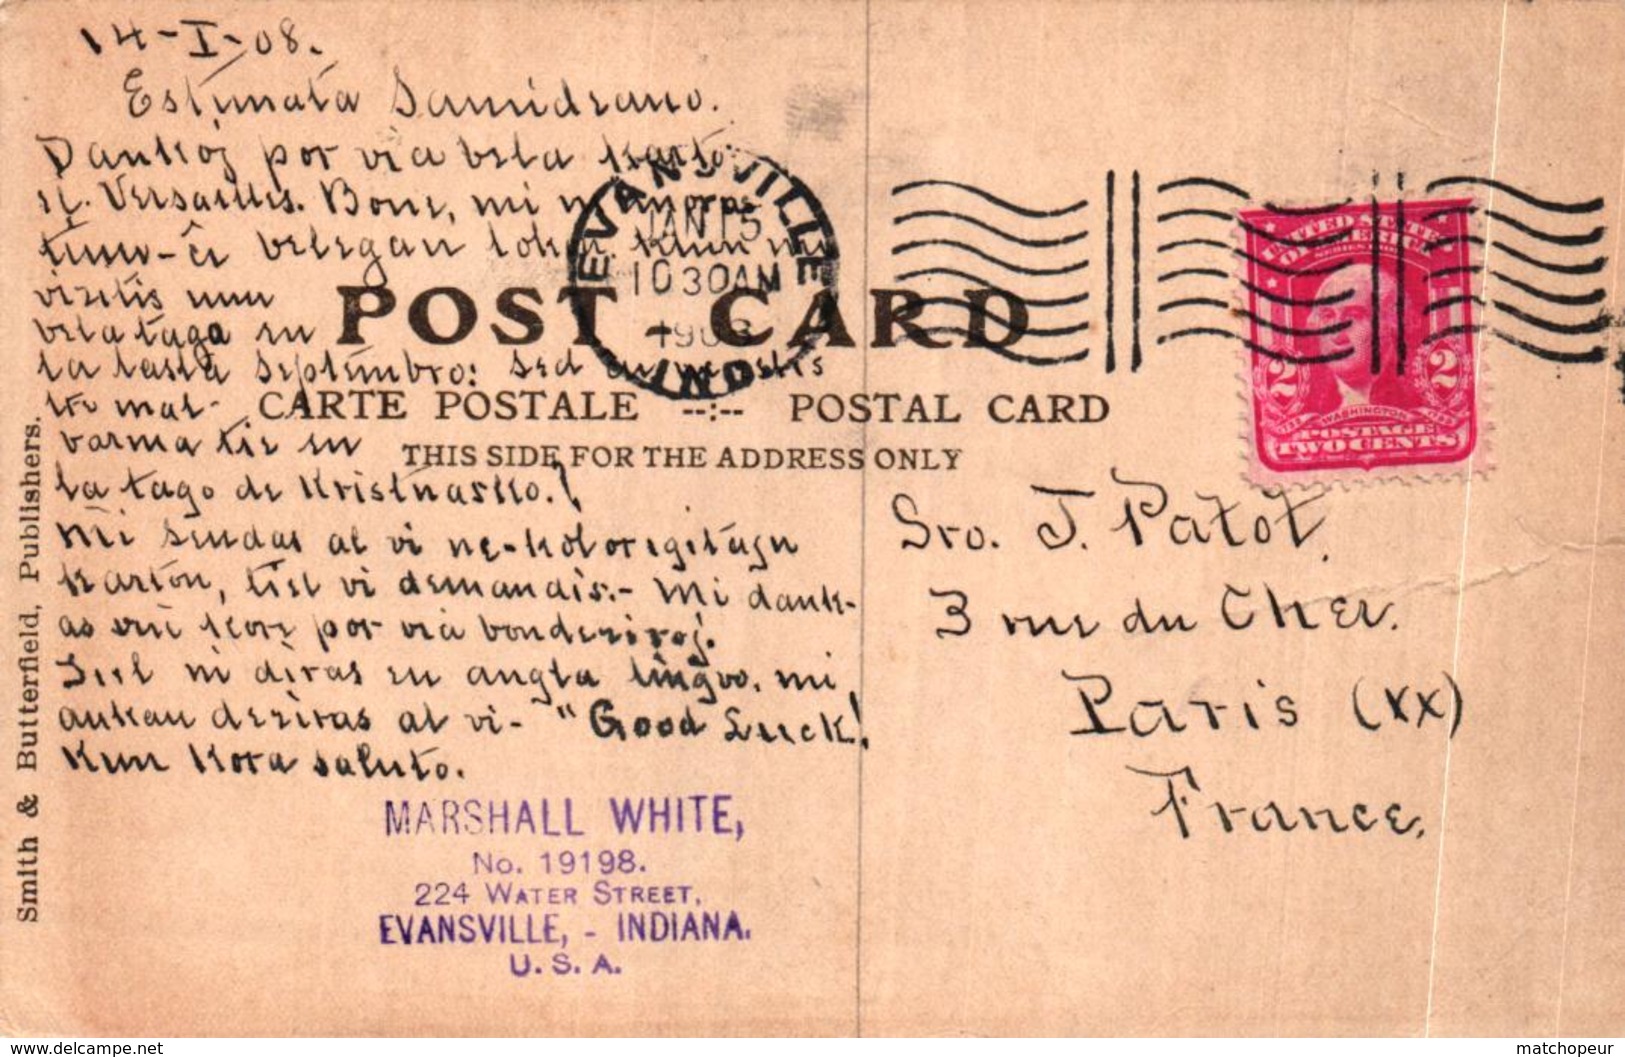 14-I-08.
Estimata Samideano.
Dankoj por via bela karto
el Versailles. Bone, mi memoras
tiun-ĉi belegan lokon, kiun mi
vizitis unu
bela tago en
la lasta Septembro: sed
tre mal-
varma tie en
la tago de Kristnasko.!
Mi sendas al vi ne-kolorigitajn
karton, tiel vi demandis.- Mi dank-
as vin kore por via bondeziroj.
Kiel ni diras en angla lingvo, mi
ankau deziras al vi- "Good Luck!
Kun Kora saluto.
MARSHALL WHITE,
No. 19198.
224 WATER STREET,
EVANSVILLE, - INDIANA.
U. S. A.
EVANSVILLE
JAN 15
10 30AM
1908
IND
POST CARD
CARTE POSTALE --:-- POSTAL CARD
THIS SIDE FOR THE ADDRESS ONLY
Smith & Butterfield, Publishers.
UNITED STATES
OF AMERICA
SERIES
2 2
WASHINGTON
POSTAGE
TWO CENTS
Sro. J. Patot.
3 rue du Cher.
Paris (XX)
France.
www.delcampe.net
matchopeur